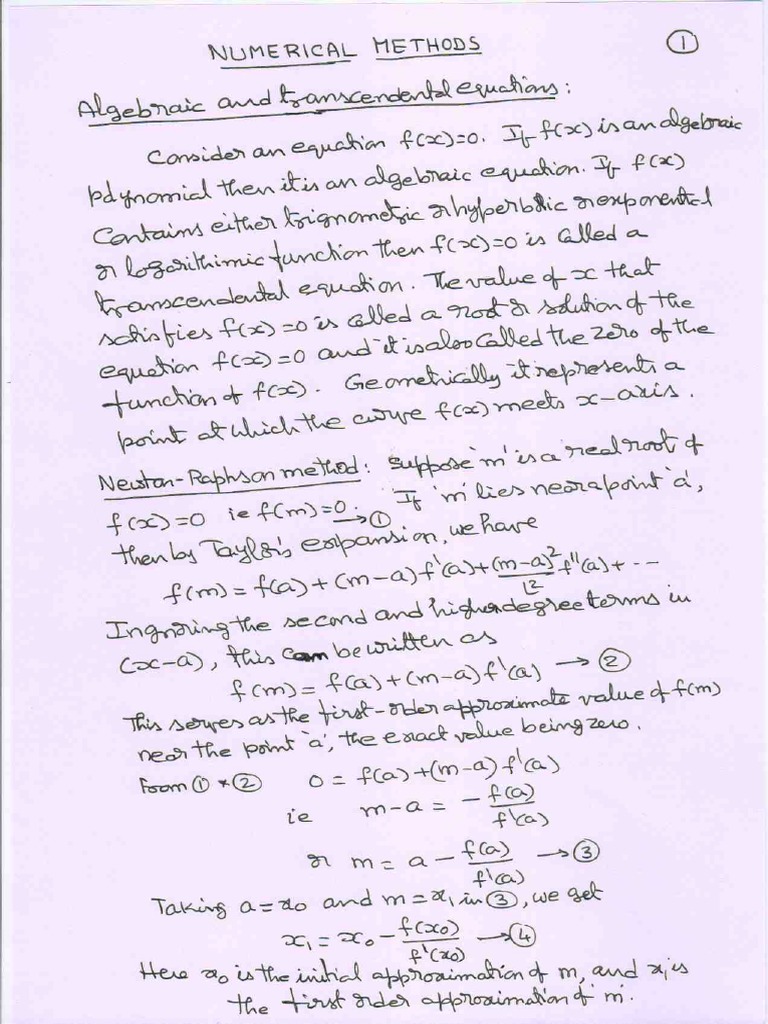 NUMERICAL METHODS ①
Algebraic and transcendental equations:
Consider an equation f(x)=0. If f(x) is an algebraic
polynomial then it is an algebraic equation. If f(x)
Contains either trignometric or hyperbolic or exponential
or logarithimic function then f(x)=0 is called a
transcendental equation. The value of x that
satisfies f(x)=0 is called a root or solution of the
equation f(x)=0 and it is also called the zero of the
function of f(x). Geometrically it represents a
point at which the curve f(x) meets x-axis.
Newton-Raphson method: Suppose 'm' is a real root of
f(x)=0 ie f(m)=0. →① If 'm' lies near a point 'a',
then by Taylor's expansion, we have
f(m) = f(a) + (m-a) f'(a) + (m-a)²/⌊2 f''(a) + ---
Ingnoring the second and higher degree terms in
(x-a), this can be written as
f(m) = f(a) + (m-a) f'(a) → ②
This serves as the first-order approximate value of f(m)
near the point 'a', the exact value being zero.
From ① & ② 0 = f(a) + (m-a) f'(a)
ie m-a = - f(a)/f'(a)
or m = a - f(a)/f'(a) → ③
Taking a = x₀ and m = x₁ in ③, we get
x₁ = x₀ - f(x₀)/f'(x₀) → ④
Here x₀ is the initial approximation of m, and x₁ is
the first order approximation of 'm'.